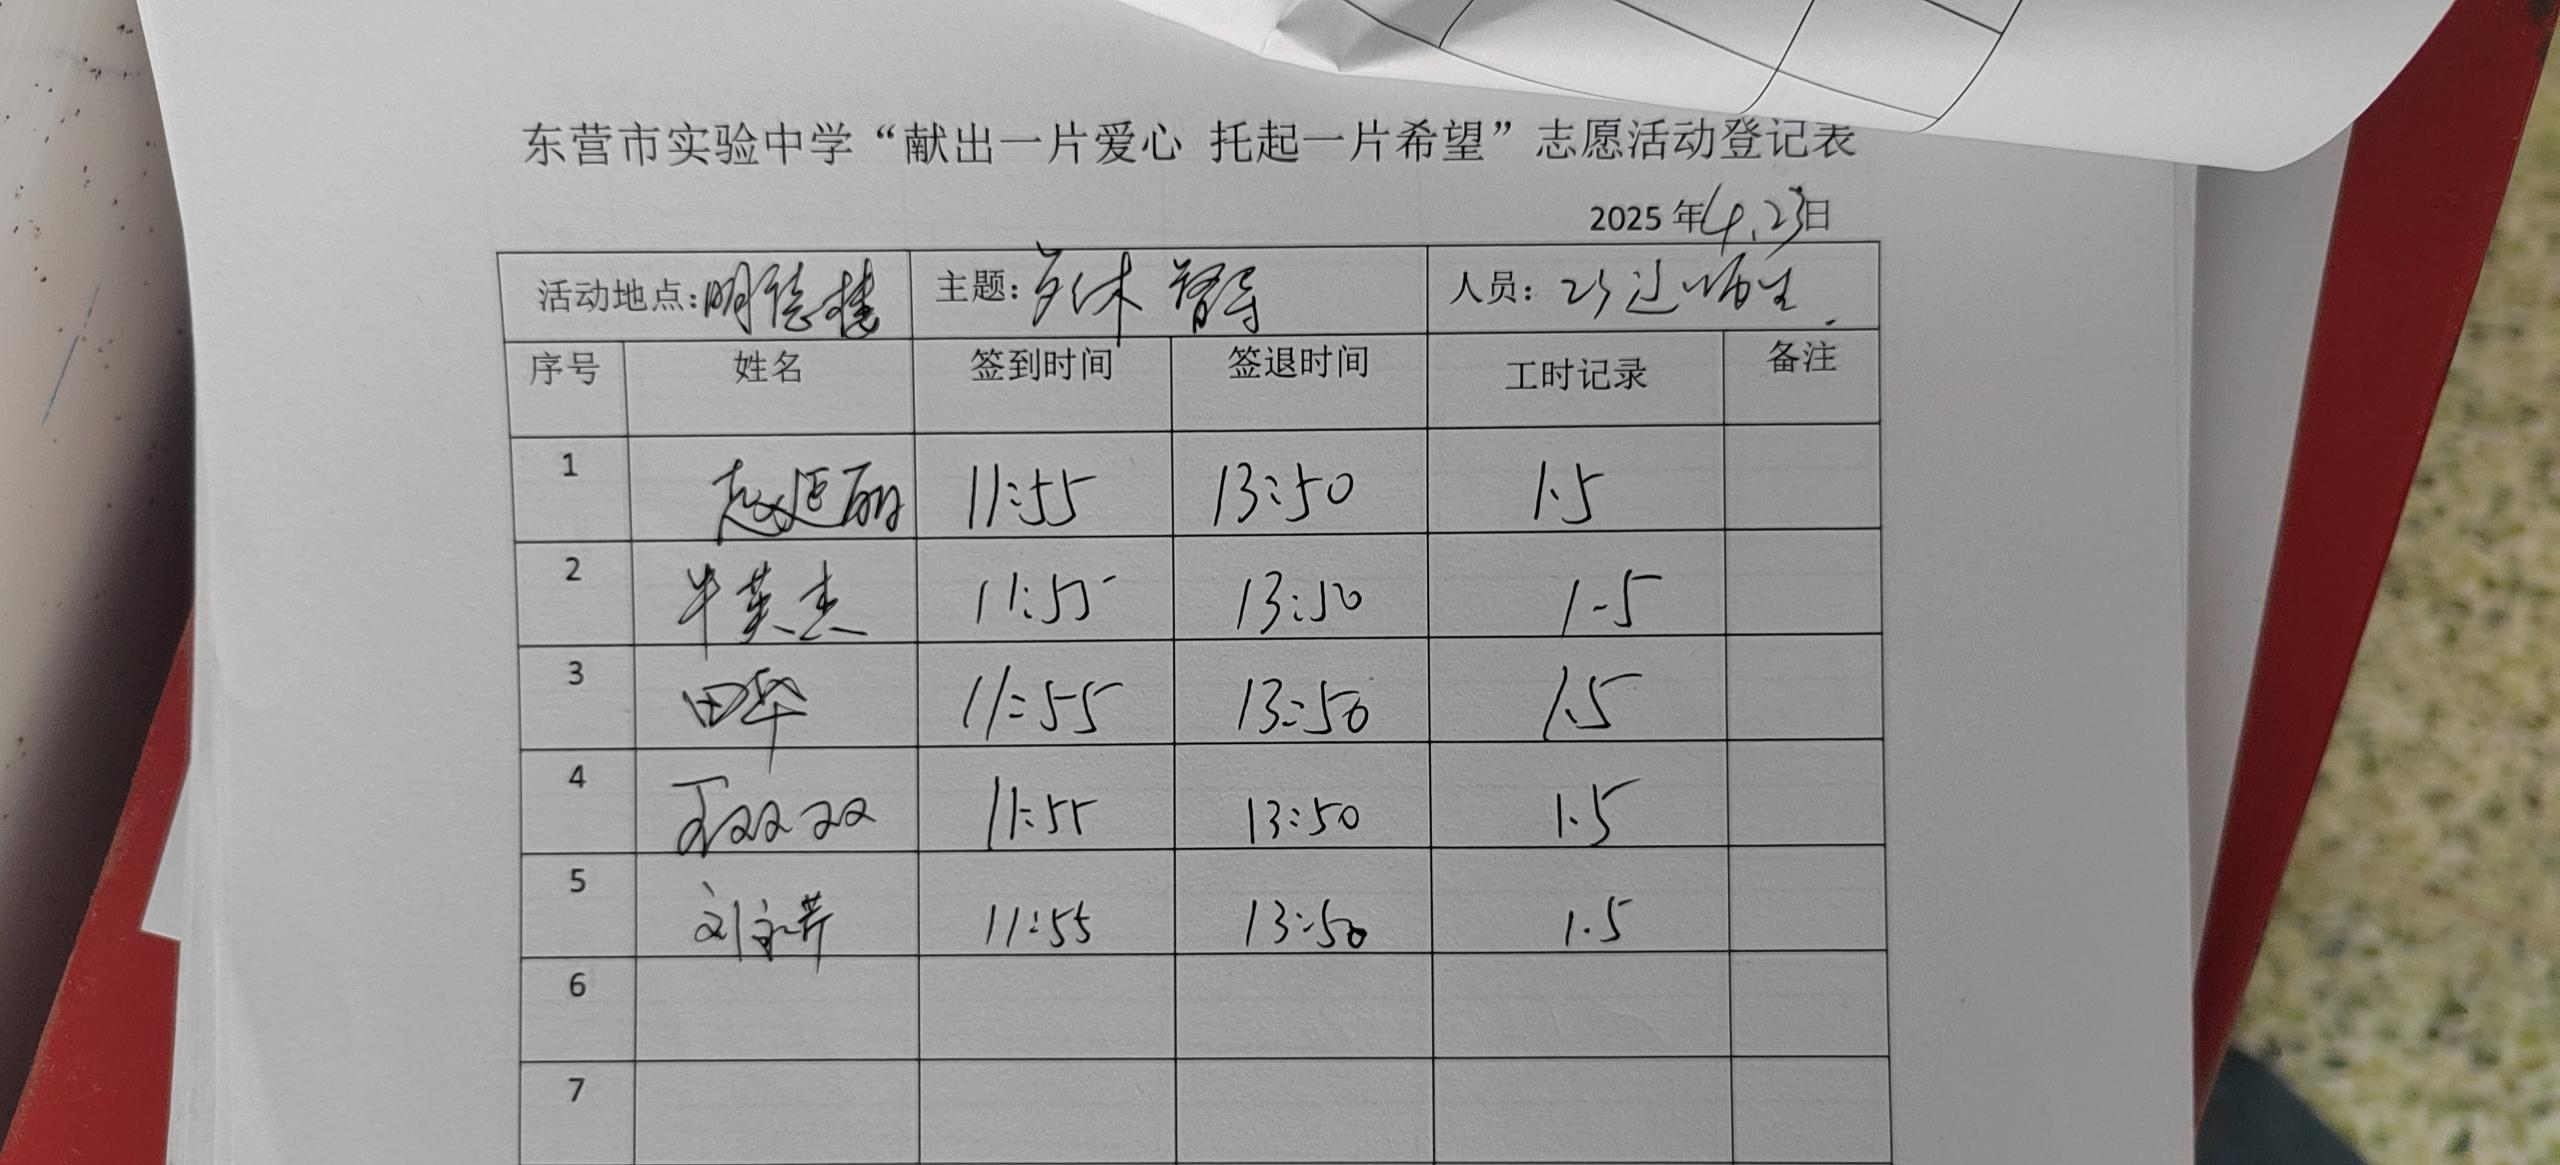 东营市实验中学“献出一片爱心 托起一片希望”志愿活动登记表
2025年4.23日
活动地点:明德楼 主题:午休督导 人员:
序号 姓名 签到时间 签退时间 工时记录 备注
1 赵延丽 11:55 13:50 1.5
2 牛英杰 11:55 13:50 1.5
3 田华 11:55 13:50 1.5
4 王双双 11:55 13:50 1.5
5 刘 11:55 13:50 1.5
6
7